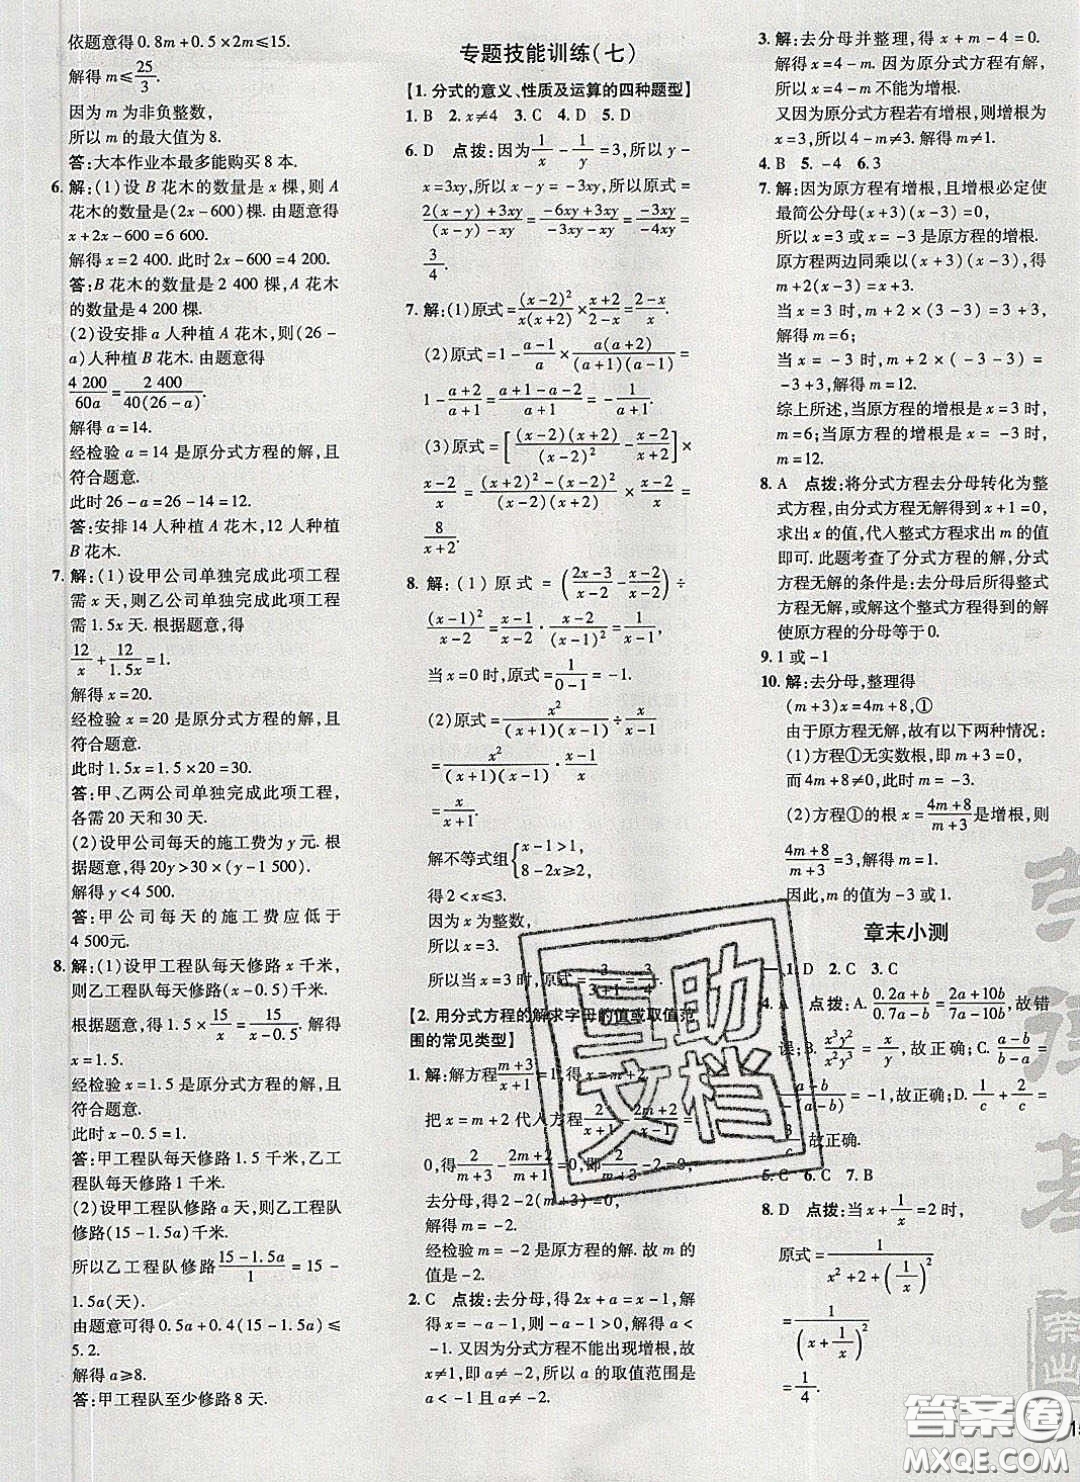 依题意得0.8m+0.5×2m≤15.
解得 m≤25/3.
因为 m 为非负整数,
所以 m 的最大值为 8.
答:大本作业本最多能购买 8 本.
6. 解:(1)设 B 花木的数量是 x 棵,则 A
花木的数量是(2x-600)棵. 由题意得
x+2x-600=6 600.
解得 x=2 400. 此时 2x-600=4 200.
答:B 花木的数量是 2 400 棵,A 花木
的数量是 4 200 棵.
(2)设安排 a 人种植 A 花木,则(26-
a)人种植 B 花木. 由题意得
4 200/60a=2 400/40(26-a).
解得 a=14.
经检验 a=14 是原分式方程的解,且
符合题意.
此时 26-a=26-14=12.
答:安排 14 人种植 A 花木,12 人种植
B 花木.
7. 解:(1)设甲公司单独完成此项工程
需 x 天,则乙公司单独完成此项工程
需 1.5x 天. 根据题意,得
12/x+12/1.5x=1.
解得 x=20.
经检验 x=20 是原分式方程的解,且
符合题意.
此时 1.5x=1.5×20=30.
答:甲、乙两公司单独完成此项工程,
各需 20 天和 30 天.
(2)设甲公司每天的施工费为 y 元. 根
据题意,得 20y>30×(y-1 500).
解得 y<4 500.
答:甲公司每天的施工费应低于
4 500元.
8. 解:(1)设甲工程队每天修路 x 千米,
则乙工程队每天修路(x-0.5)千米.
根据题意,得 1.5×15/x=15/(x-0.5).解得
x=1.5.
经检验 x=1.5 是原分式方程的解,且
符合题意.
此时 x-0.5=1.
答:甲工程队每天修路 1.5 千米,乙工
程队每天修路 1 千米.
(2)设甲工程队修路 a 天,则乙工程队
修路(15-1.5a)千米.
所以乙工程队修路(15-1.5a)/1=15-
1.5a(天).
由题意可得0.5a+0.4(15-1.5a)≤
5.2.
解得 a≥8.
答:甲工程队至少修路 8 天.
专题技能训练(七)
【1. 分式的意义、性质及运算的四种题型】
1. B 2. x≠4 3. C 4. D 5. D
6. D 点拨:因为1/x-1/y=3,所以 y-
x=3xy,所以 x-y=-3xy,所以原式=
(2(x-y)+3xy)/((x-y)-xy)=(-6xy+3xy)/(-3xy-xy)=(-3xy)/(-4xy)=
3/4.
7. 解:(1)原式=(x-2)²/x(x+2)×(x+2)/(2-x)=(2-x)/x.
(2)原式=1-(a-1)/a×a(a+2)/(a+1)(a-1)=
1-(a+2)/(a+1)=(a+1-a-2)/(a+1)=-1/(a+1).
(3)原式=[(x-2)(x+2)/(x-2)²-(x-2)/(x+2)]×
(x-2)/x=(x+2)/(x-2)×(x-2)/x-(x-2)/(x+2)×(x-2)/x=
8/(x+2).
8. 解:(1)原式=((2x-3)/(x-2)-(x-2)/(x-2))÷
(x-1)²/(x-2)=(x-1)/(x-2)·(x-2)/(x-1)²=1/(x-1),
当 x=0 时,原式=1/(0-1)=-1.
(2)原式=x²/(x+1)(x-1)÷x/(x-1)
=x²/(x+1)(x-1)·(x-1)/x
=x/(x+1).
解不等式组{x-1>1, 8-2x≥2,
得 2<x≤3.
因为 x 为整数,
所以 x=3.
所以当 x=3 时,原式=3/(3+1)=3/4.
【2. 用分式方程的解求字母的值或取值范
围的常见类型】
1. 解:解方程(m+3)/(x+1)=1,得
把 x=m+2 代入方程2/(x+1)-(m+2)/(x-1)=
0,得2/(m+1)-(2m+2)/(m+1)=0,即
去分母,得 2-2(m+3)=0.
解得 m=-2.
经检验 m=-2 是原方程的解. 故 m 的
值是-2.
2. C 点拨:去分母,得 2x+a=x-1,解
得 x=-a-1,所以-a-1>0,解得 a<
-1. 又因为分式方程不能出现增根,
所以 a≠-2,所以 a 的取值范围是 a<
-1 且 a≠-2.
3. 解:去分母并整理,得 x+m-4=0.
解得 x=4-m. 因为原分式方程有解,
所以 x=4-m 不能为增根.
又因为原分式方程若有增根,则增根为
x=3,所以 4-m≠3. 解得 m≠1.
4. B 5. -4 6. 3
7. 解:因为原方程有增根,且增根必定使
最简公分母(x+3)(x-3)=0,
所以 x=3 或 x=-3 是原方程的增根.
原方程两边同乘以(x+3)(x-3),得
m+2(x-3)=x+3.
当 x=3 时,m+2×(3-3)=3+3,
解得 m=6;
当 x=-3 时,m+2×(-3-3)=
-3+3,解得 m=12.
综上所述,当原方程的增根是 x=3 时,
m=6;当原方程的增根是 x=-3 时,
m=12.
8. A 点拨:将分式方程去分母转化为整
式方程,由分式方程无解得到 x+1=0,
求出 x 的值,代入整式方程求出 m 的值
即可. 此题考查了分式方程的解,分式
方程无解的条件是:去分母后所得整式
方程无解,或解这个整式方程得到的解
使原方程的分母等于 0.
9. 1 或-1
10. 解:去分母,整理得
(m+3)x=4m+8,①
由于原方程无解,故有以下两种情况:
(1)方程①无实数根,即 m+3=0,
而 4m+8≠0,此时 m=-3.
(2)方程①的根 x=(4m+8)/(m+3)是增根,则
(4m+8)/(m+3)=3,解得 m=1.
因此,m 的值为-3 或 1.
章末小测
一、1. D 2. C 3. C
4. A 点拨:A. (0.2a+b)/(0.7a-b)=(2a+10b)/(7a-10b),故错
误;B. x³y²/x²y³=x/y,故正确;C. (a-b)/(b-a)=
=-1,故正确;D. 1/c+2/c=
3/c,故正确.
5. C 6. C 7. B
8. D 点拨:当 x+1/x=2 时,
原式=1/(x²+2+(1/x)²)
=1/(x+1/x)²
=1/4.
互助
文档
答案圈
MXQE.COM